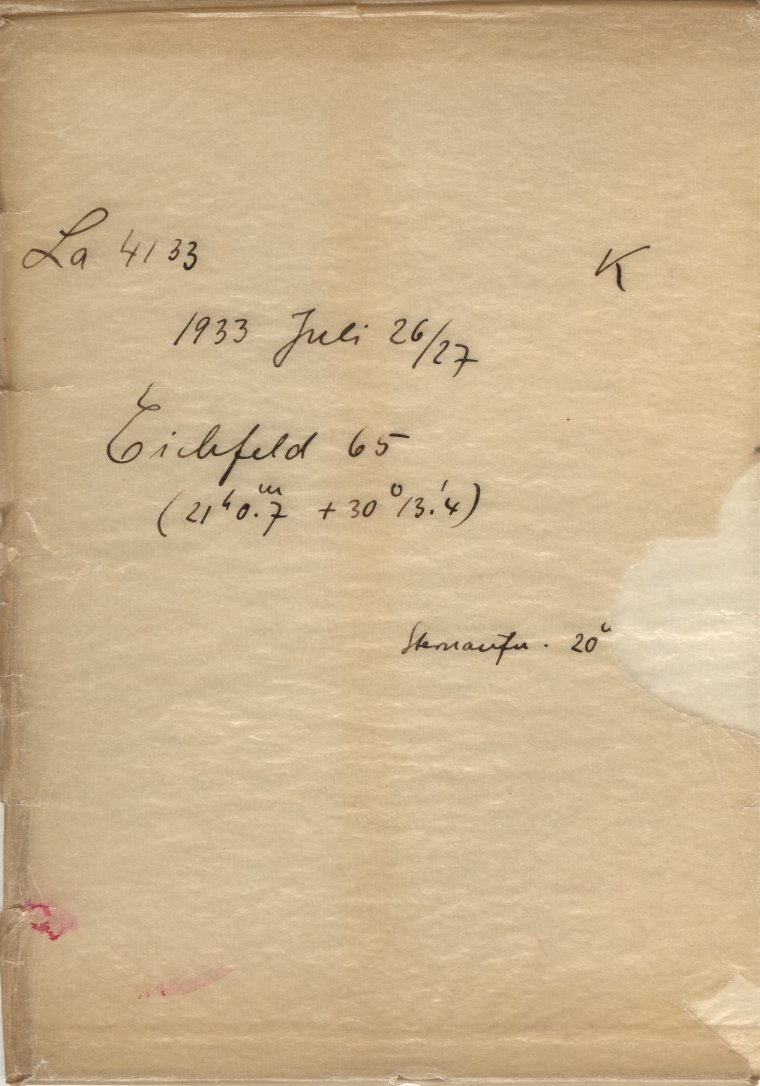 La 4133 K
1933 Juli 26/27
Eichfeld 65
(21ʰ0ᵐ.7 +30°13'.4)
Sternaufn. 20ᵘ